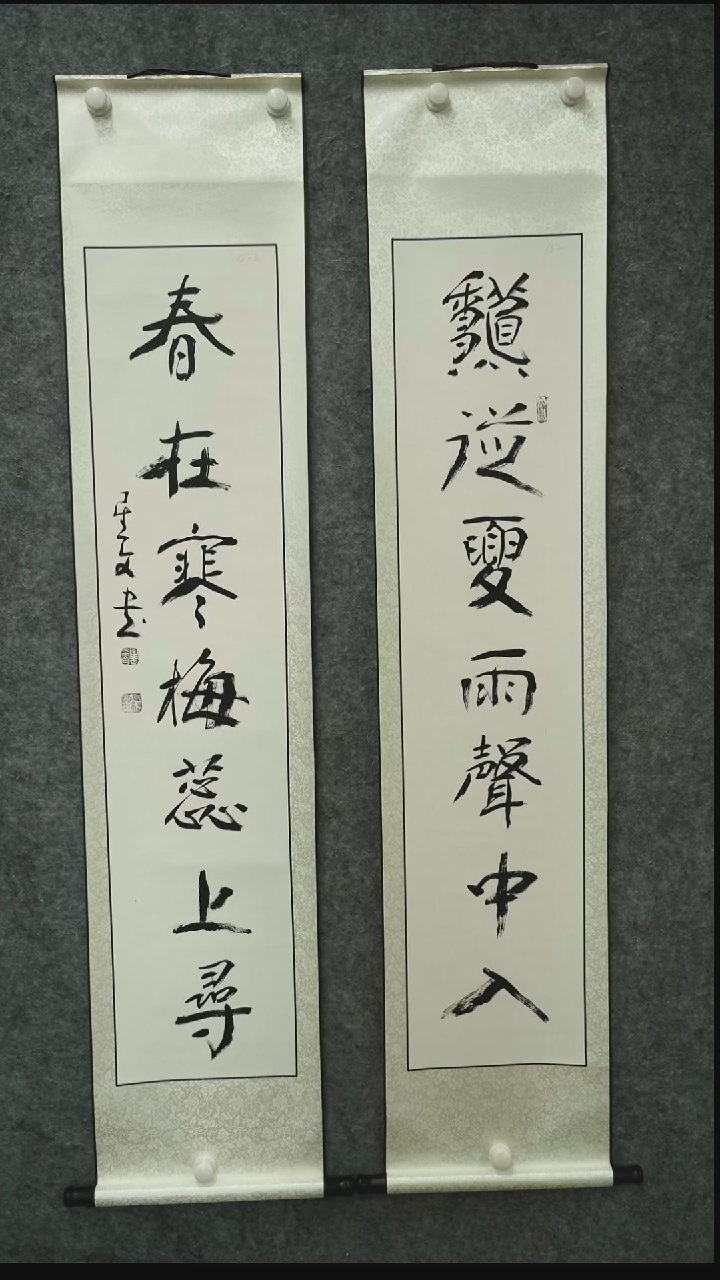 龝從夏雨聲中入
春在寒梅蕊上尋
星文書